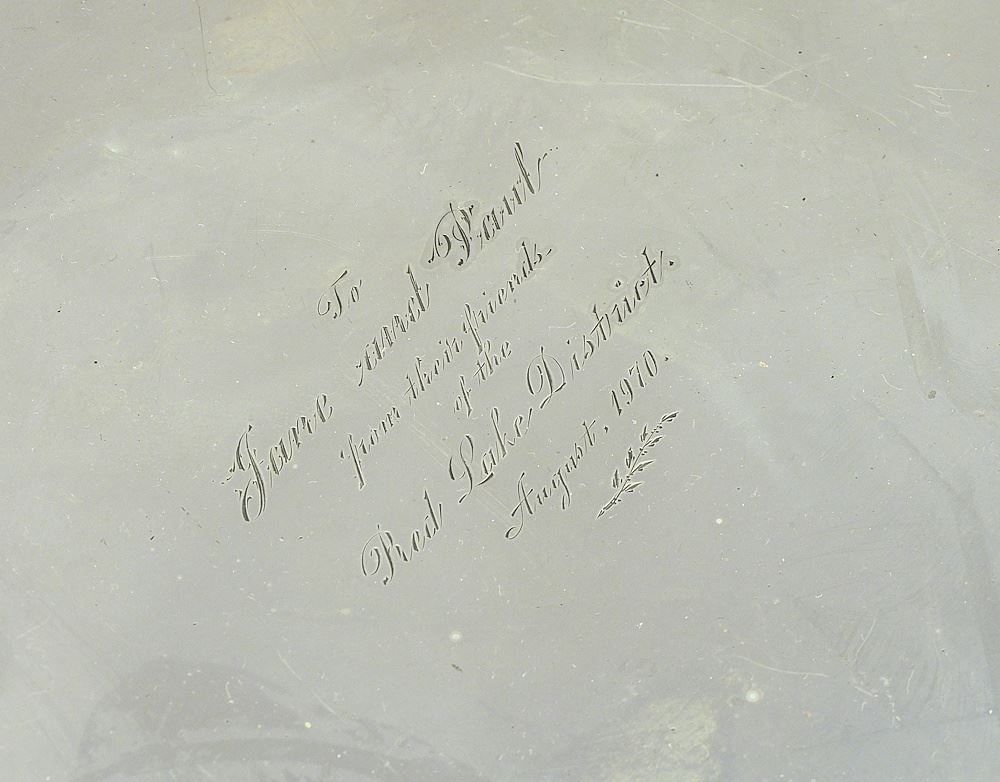 To
Jane and Paul
from their friends
of the
Red Lake District.
August, 1970.